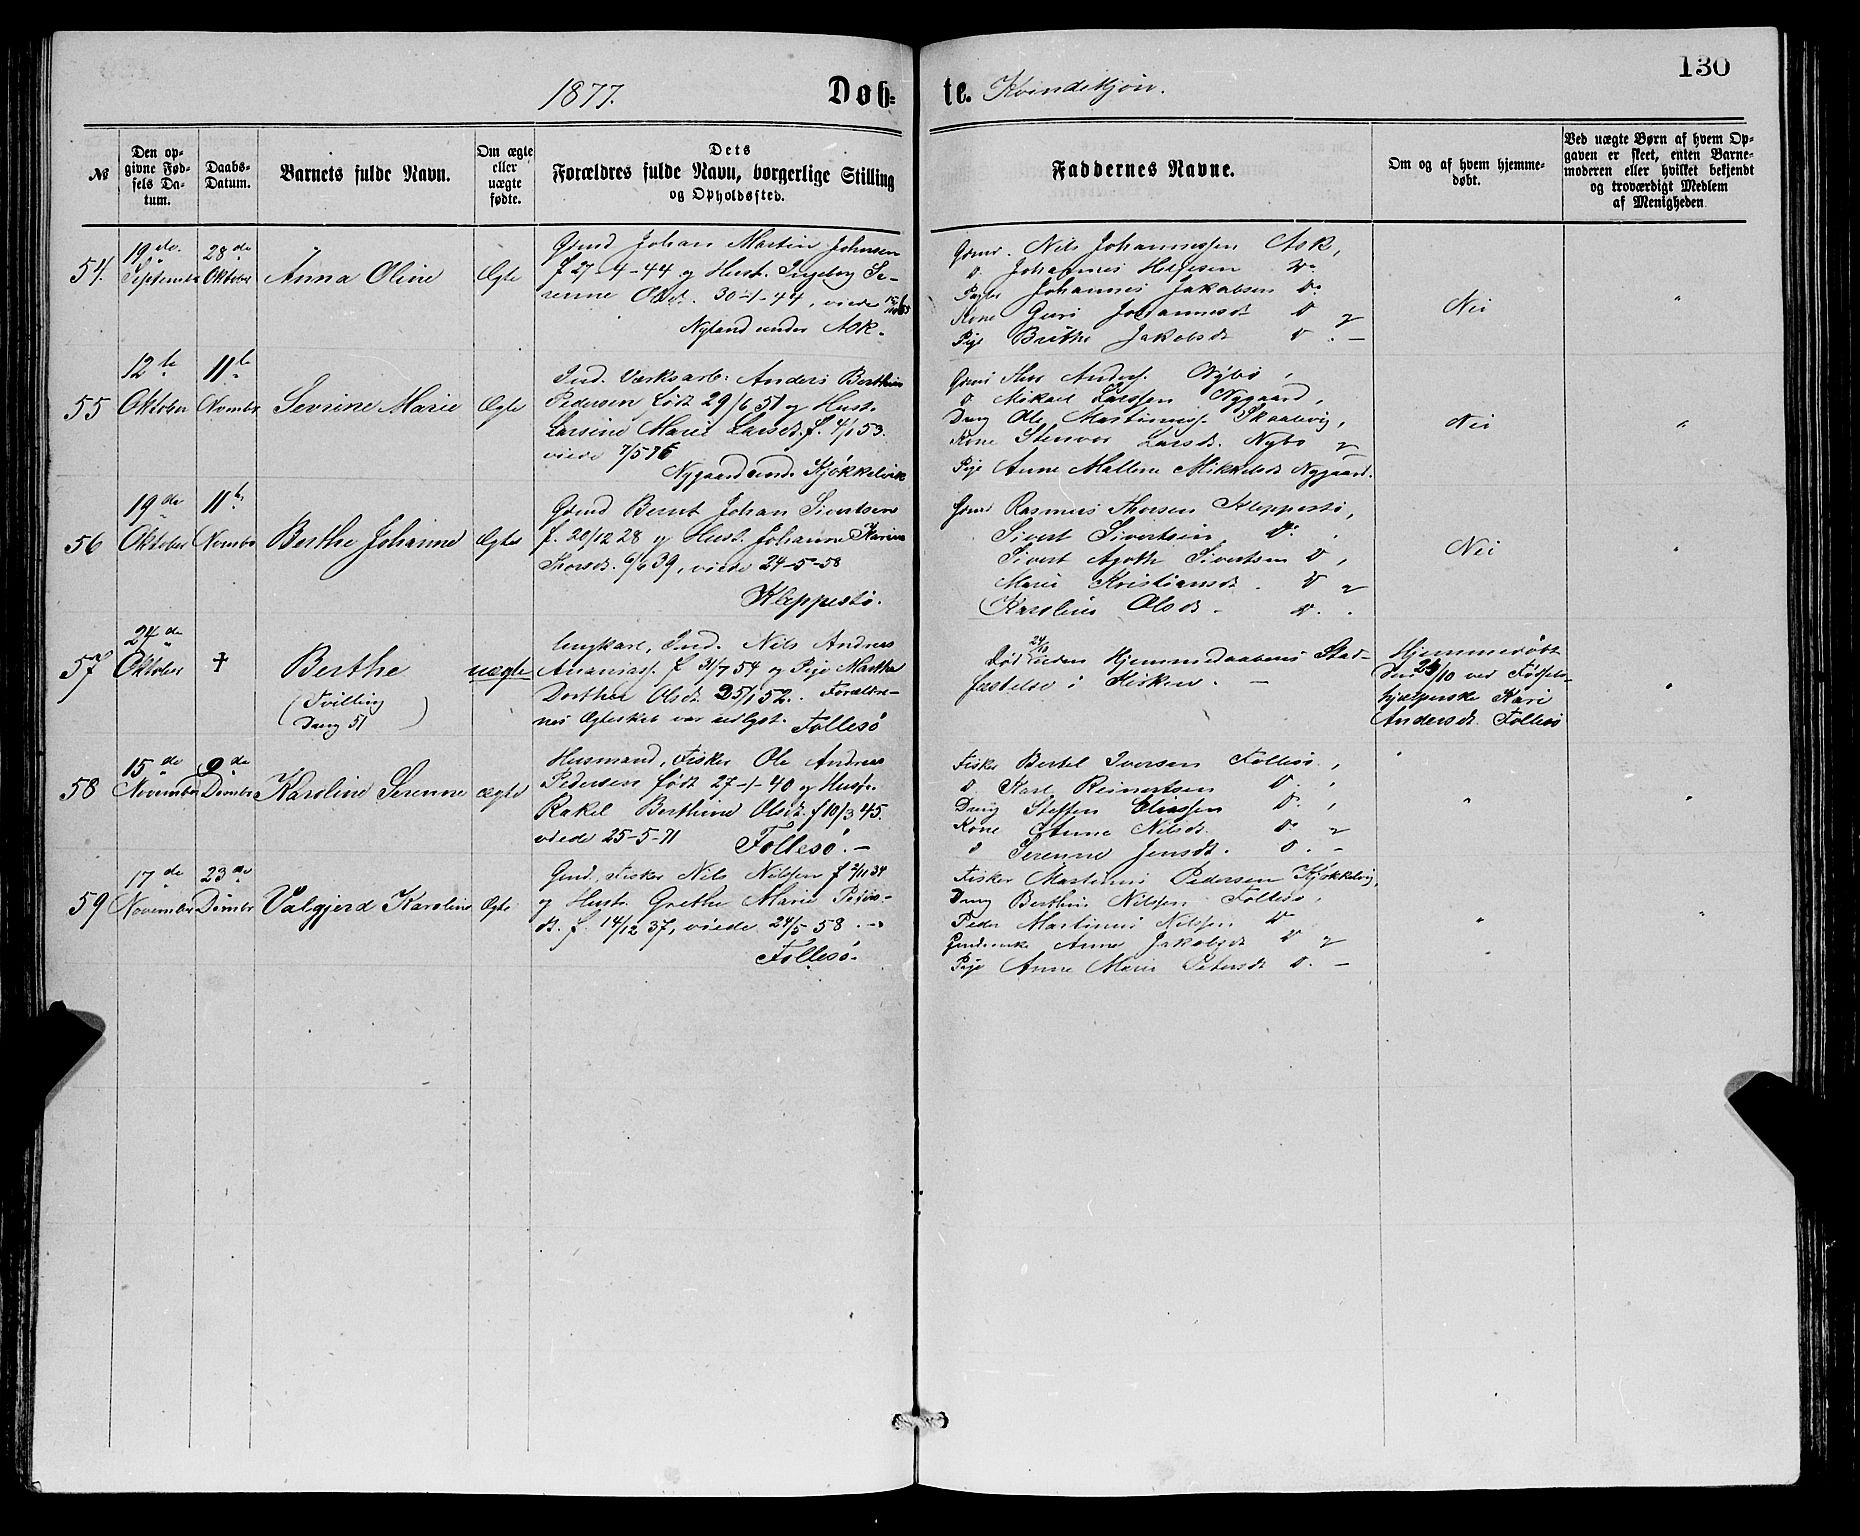 130
1877. Døb- te. Kvindekjøn.
№
Den opgivne Fødsels Datum.
Daabs-Datum.
Barnets fulde Navn.
Om ægte eller uægte fødte.
Dets Forældres fulde Navn, borgerlige Stilling og Opholdssted.
Faddernes Navne.
Om og af hvem hjemmedøbt.
Ved uægte Børn af hvem Opgaven er skeet, enten Barnemoderen eller hvilket bekjendt og troværdigt Medlem af Menigheden
54.
19de September
28de Oktober
Anna Oline
Ægte
Gmd Johan Martin Johnsen
f 27-4-44 og Hust. Ingeborg Se-
renne Olsdt. 30-1-44, viede
Nyland under Ask.
Gmd. Nils Johannessen Ask,
D. Johannes Helgesen Do
Johannes Jakobsen Do
Kone Guri Johannesdt D og
Pige Brithe Jakobsdt D. —
Nei
"
55
12te Oktober
11te Novmbr
Sevrine Marie
Ægte
Ind. Værksarb. Anders Berthin
Pedersen født 29/6 51 og Hust.
Larsine Marie Larsdt. f. 4/1 53.
viede 7/5 76
Nygaard und. Kjøkkelvik
Thor Anders. Nybø,
D. Mikael Larssen Nygaard,
Dreng Ole Martinus. Skaalevig,
Kone Stenvor Larsdt. Nybø og
Pige Anne Mallene Mikkelsdt Nygaard.
Nei
"
56
19de Oktober
11te Novmbr
Berthe Johanne
Ægte
Gmd Bernt Johan Sivertsen
f. 20/12 28 og Hust. Johanne Karine
Thorsdt. 6/6 39, viede 24-5-58
Kleppestø.
Gmd Rasmus Thorsen Kleppestø,
Sivert Sivertsen D.,
Sivert Agoth Sivertsen D,
Marie Kristiansdt. D og
Karoline Olsdt. D.
Nei
"
57
24de Oktober
†
Berthe
(Tvilling
Dreng 51)
uægte
Ungkarl, Ind. Nils Andreas
Ananiass. f 31/7 54 og Pige Marthe
Dorthea Olsdt. 25/1 52. Forældre-
nes Ægteskab var udlyst. Follesø
Død uden Hjemmedaabens Stad-
fæstelse i Kirken. —
Hjemmedøbt
den 24/10 ved Fødsels-
hjælperske Kari
Andersdt. Follesø
"
58
15de November
9de Dcmbr
Karoline Serenne
ægte
Husmand, Fisker Ole Andreas
Pedersen født 27-1-40 og Hustr.
Rakel Berthine Olsdt. f 10/3 45.
viede 25-5-71 Follesø. —
Fisker Bertel Iversen Follesø,
D. Karl Reinertsen D.,
Dreng Steffen Eliassen D.,
Kone Anne Nilsdt. D. og
D Serenne Jensdt. D. —
"
"
59
17de November
23de Dcmbr
Valgjerd Karoline
Ægte
Gmd. Fisker Nils Nilssen f 2/11 34
og Hustr. Grethe Marie Peters-
dt. f. 14/12 37, viede 24/5 58. —
Follesø.
Fisker Martinus Pedersen Kjøkkelvig,
Dreng Berthin Nilssen Follesø,
Peder Martinus Nilssen D
Anne Jakobsdt D og
Pige Anne Marie Petersdt D. —
"
"